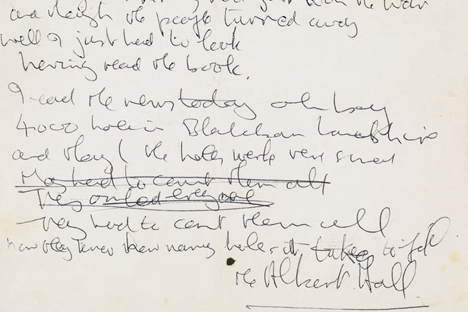 just won the war
and though the people turned away
well I just had to look
having read the book.
I read the news today oh boy
4000 holes in Blackburn Lancashire
and though the holes were very small
They had to count them all
They
They had to count them all
now they know how many holes it takes to fill
the Albert Hall.